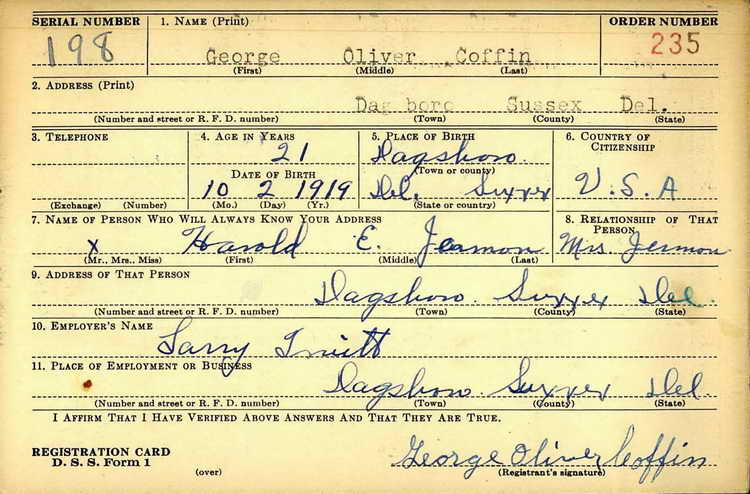 SERIAL NUMBER 1. NAME (Print) ORDER NUMBER
198 George Oliver Coffin 235
(First) (Middle) (Last)
2. ADDRESS (Print)
Dag boro Sussex Del.
(Number and street or R. F. D. number) (Town) (County) (State)
3. TELEPHONE 4. AGE IN YEARS 5. PLACE OF BIRTH 6. COUNTRY OF
CITIZENSHIP
21 Dagsboro.
DATE OF BIRTH (Town or county)
10 2 1919 Del. Sussex U.S.A
(Exchange) (Number) (Mo.) (Day) (Yr.) (State or country)
7. NAME OF PERSON WHO WILL ALWAYS KNOW YOUR ADDRESS 8. RELATIONSHIP OF THAT
PERSON
x Harold E. Jermon Mrs. Jermon
(Mr., Mrs., Miss) (First) (Middle) (Last)
9. ADDRESS OF THAT PERSON
Dagsboro. Sussex Del.
(Number and street or R. F. D. number) (Town) (County) (State)
10. EMPLOYER'S NAME
Larry
11. PLACE OF EMPLOYMENT OR BUSINESS
Dagsboro Sussex Del.
(Number and street or R. F. D. number) (Town) (County) (State)
I AFFIRM THAT I HAVE VERIFIED ABOVE ANSWERS AND THAT THEY ARE TRUE.
REGISTRATION CARD
D. S. S. Form 1 George Oliver Coffin
(over) (Registrant's signature)